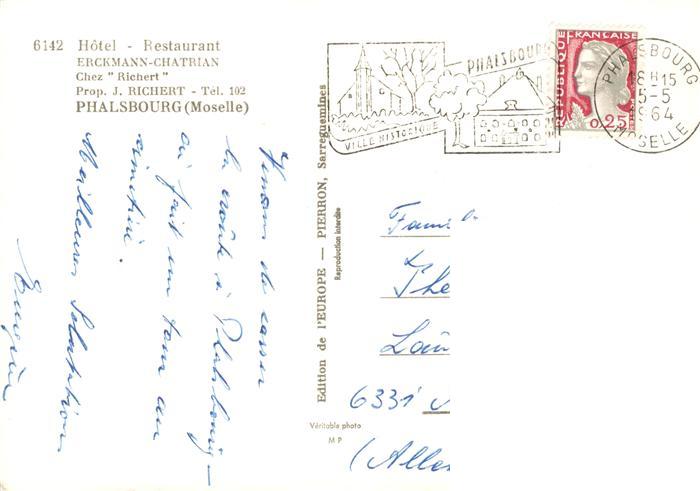 6142 Hôtel - Restaurant
ERCKMANN-CHATRIAN
Chez "Richert"
Prop. J. RICHERT - Tél. 102
PHALSBOURG (Moselle)
Venons de casser
la croûte à Phalsbourg -
on fait un tour au
cimetière.
Meilleures Salutations
Edition de l'EUROPE — PIERRON, Sarreguemines
Reproduction interdite
Véritable photo
M P
PHALSBOURG
VILLE HISTORIQUE
REPUBLIQUE FRANÇAISE
0,25
PHALSBOURG
18 H 15
5-5
1964
MOSELLE
Famil
6331
(Alle